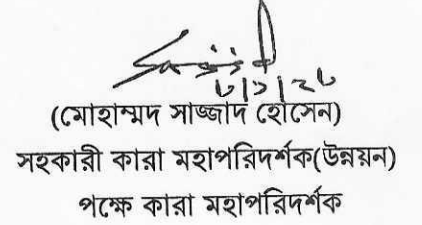 ৮|১|২৮
(মোহাম্মদ সাজ্জাদ হোসেন)
সহকারী কারা মহাপরিদর্শক(উন্নয়ন)
পক্ষে কারা মহাপরিদর্শক